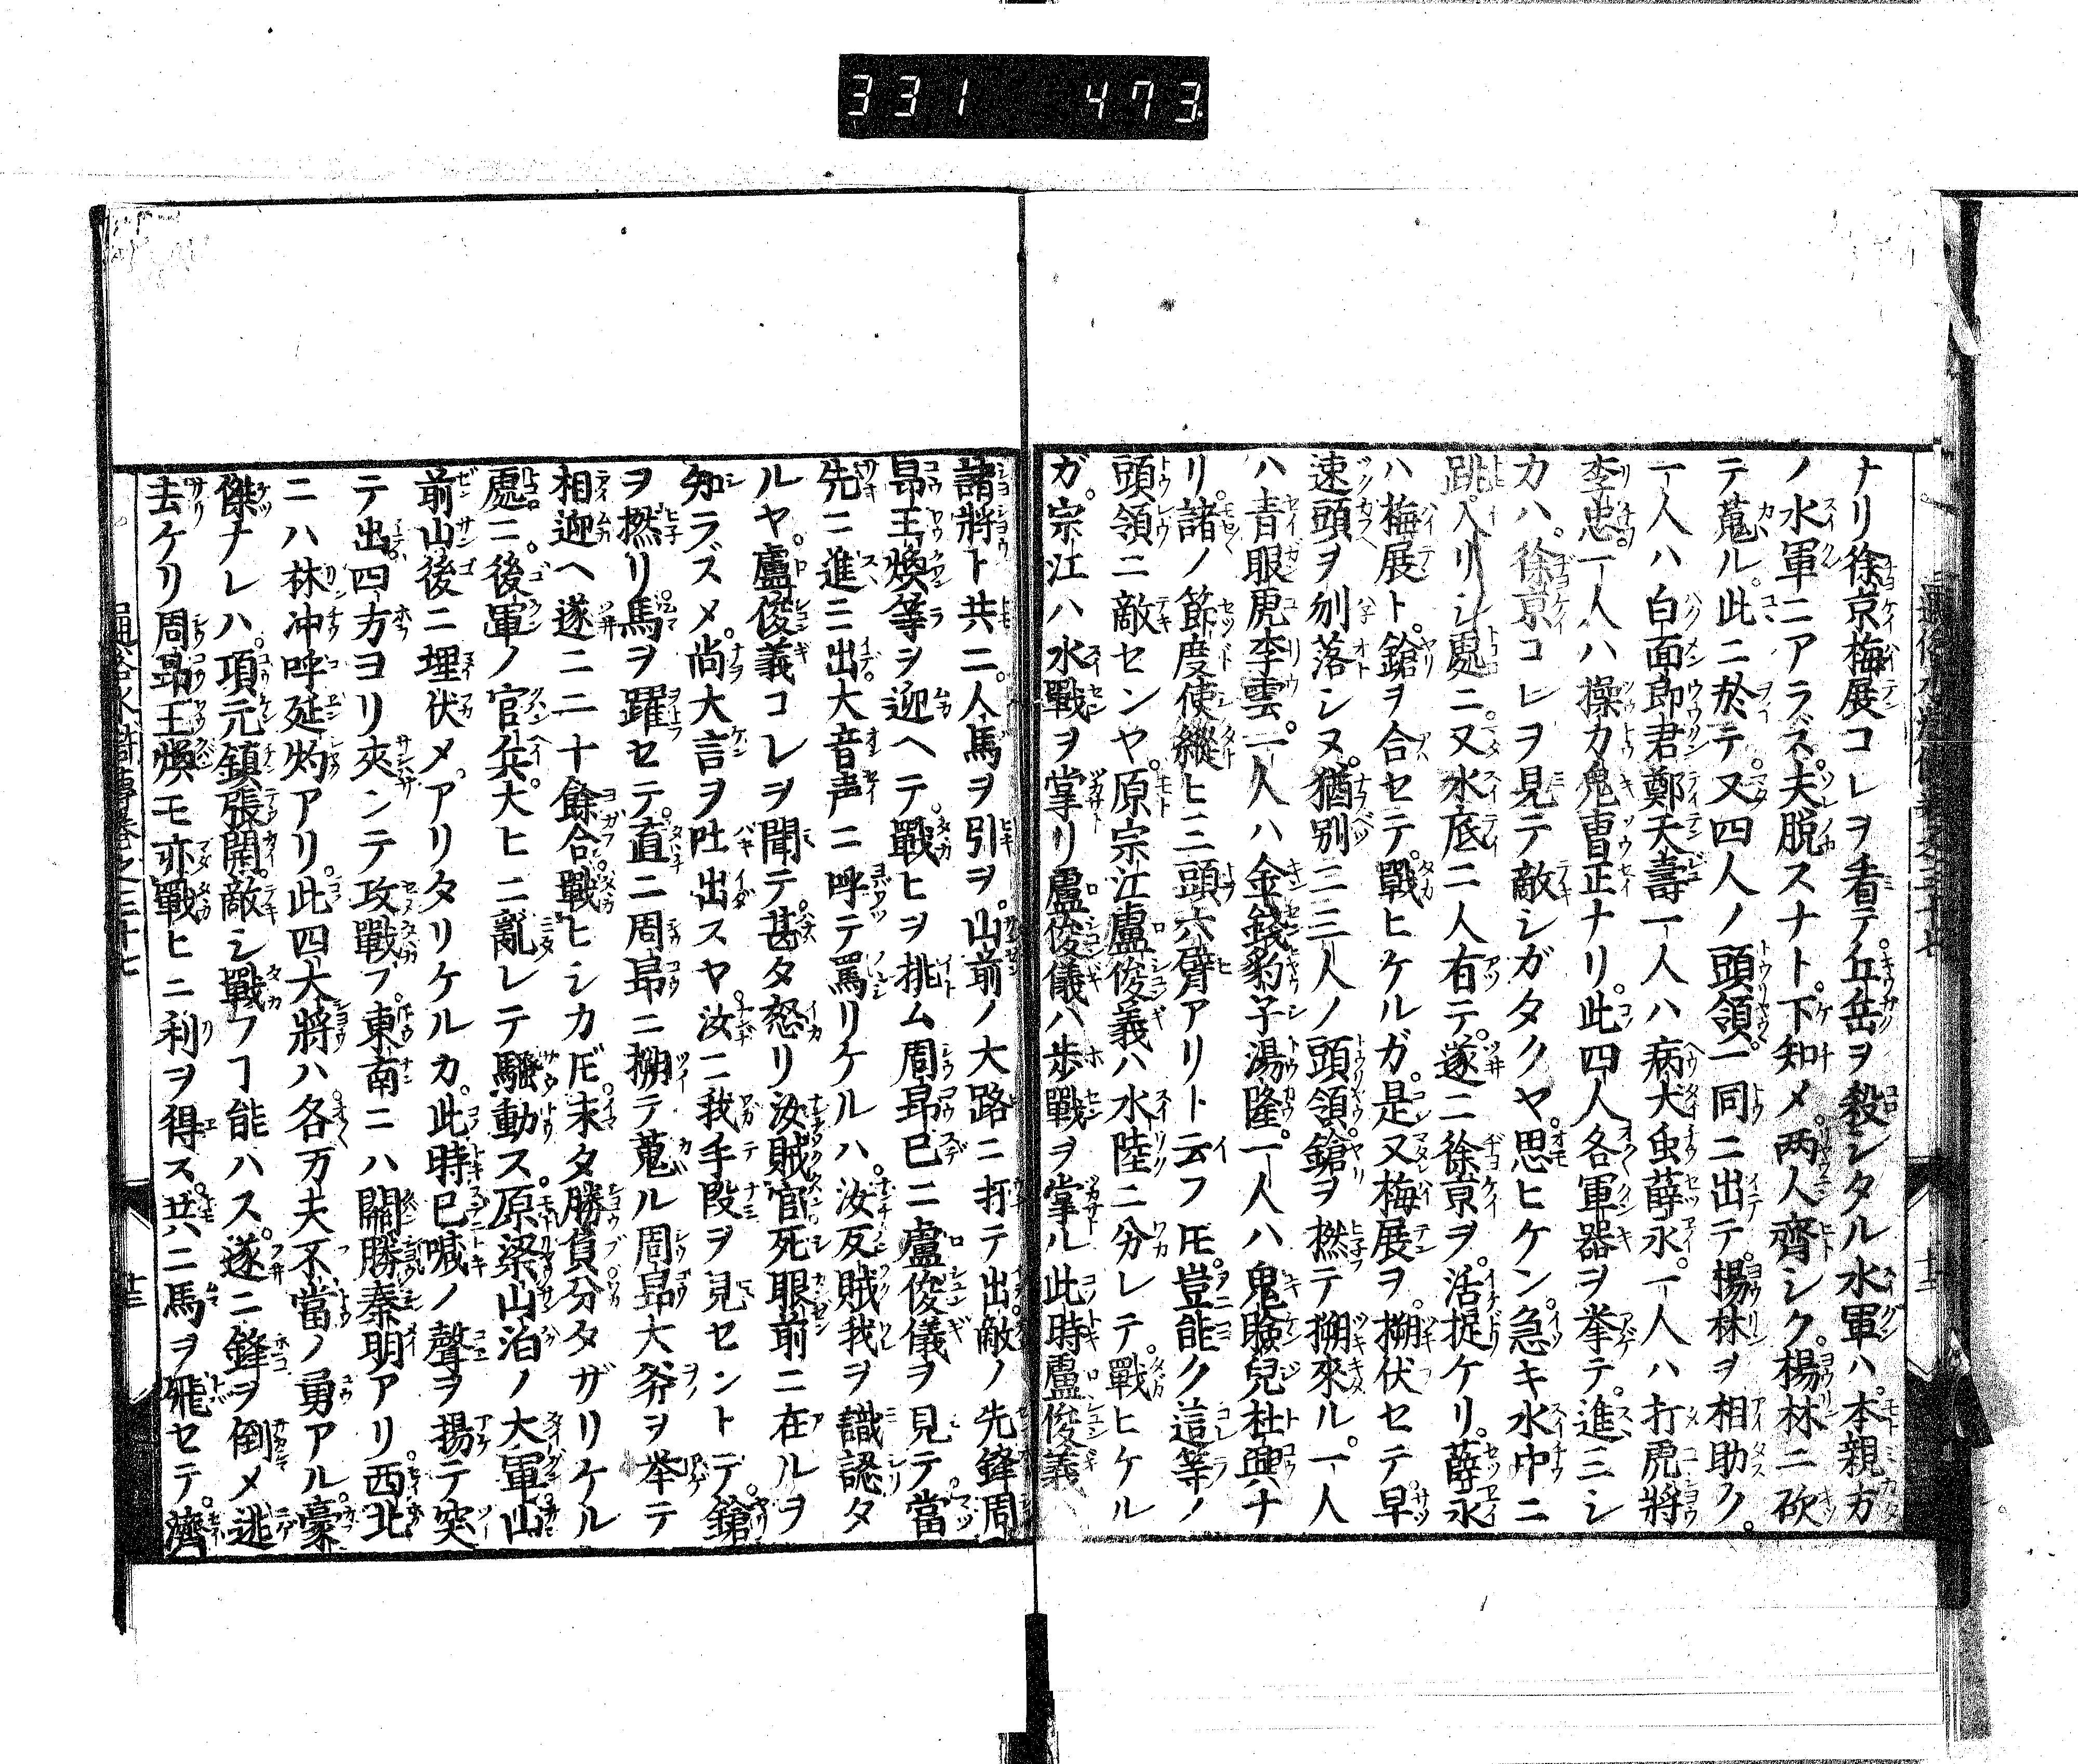 331 473
ナリ徐京梅展コレヲ看テ。丘岳ヲ殺シタル水軍ハ。本親方
ノ水軍ニアラズ。夫脱スナト。下知メ。两人齊シク。楊林ニ砍
テ蒐ル。此ニ於テ。又四人ノ頭領。一同ニ出テ。楊林ヲ相助ク。
一人ハ白面郎君鄭天壽一人ハ病大虫薛永。一人ハ打虎將
李忠。一人ハ操刀鬼曺正ナリ。此四人各軍器ヲ挙テ。進ミシ
カハ。徐京コレヲ見テ敵シガタクヤ。思ヒケン。急キ水中ニ
跳入リシ處ニ。又水底ニ人有テ。遂ニ徐京ヲ。活捉ケリ。薛永
ハ梅展ト。鎗ヲ合セテ。戰ヒケルガ。是又梅展ヲ。搠伏セテ。早
速頭ヲ刎落シヌ。猶別ニ三人ノ頭領。鎗ヲ撚テ搠來ル。一人
ハ青眼虎李雲。一人ハ金錢豹子湯隆。一人ハ鬼臉兒杜興ナ
リ。諸ノ節度使縱ヒ三頭六臂アリト云フ𪜈。豈能ク這等ノ
頭領ニ敵センヤ。原宗江盧俊義ハ水陸ニ分レテ。戰ヒケル
ガ。宗江ハ水戰ヲ掌リ盧俊儀ハ歩戰ヲ掌ル此時盧俊義
諸將ト共ニ。人馬ヲ引ヲ。山前ノ大路ニ打テ出。敵ノ先鋒周
昂王煥等ヲ迎ヘテ。戰ヒヲ挑ム周昻已ニ盧俊儀ヲ見テ。當
先ニ進ミ出。大音声ニ呼テ罵リケルハ。汝反賊我ヲ識認タ
ルヤ。盧俊義コレヲ聞テ。甚タ怒リ汝賊官死眼前ニ在ルヲ
知ラズメ。尚大言ヲ吐出スヤ。汝ニ我手段ヲ見セントテ。鎗
ヲ撚リ。馬ヲ躍セテ。直ニ周昻ニ搠テ蒐ル周昻大斧ヲ挙テ
相迎ヘ遂ニ二十餘合。戰ヒシカ𪜈。未タ勝負分タザリケル
處ニ。後軍ノ官兵。大ヒニ亂レテ騷動ス。原梁山泊ノ大軍。山
前山後ニ埋伏メ。アリタリケルカ。此時已喊ノ聲ヲ揚テ突
テ出。四方ヨリ夾ンテ攻戰フ。東南ニハ關勝秦明アリ西北
ニハ林冲呼延灼アリ。此四大將ハ各万夫不當ノ勇アル。豪
傑ナレハ。項元鎮張開。敵シ戰フヿ能ハス。遂ニ鋒ヲ倒メ逃
去ケリ周昻王煥モ亦戰ヒニ利ヲ得ス。共ニ馬ヲ飛セテ。濟